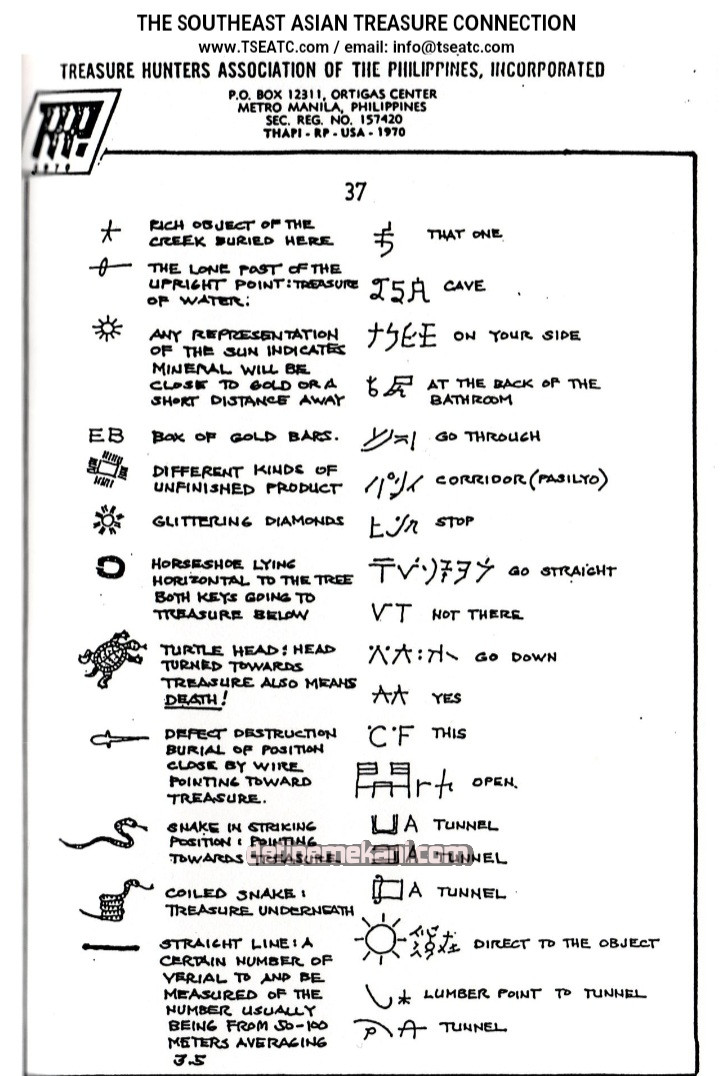 THE SOUTHEAST ASIAN TREASURE CONNECTION
www.TSEATC.com / email: info@tseatc.com
TREASURE HUNTERS ASSOCIATION OF THE PHILIPPINES, INCORPORATED
P.O. BOX 12311, ORTIGAS CENTER
METRO MANILA, PHILIPPINES
SEC. REG. NO. 157420
THAPI - RP - USA - 1970
37
RICH OBJECT OF THE
CREEK BURIED HERE
THE LONE POST OF THE
UPRIGHT POINT: TREASURE
OF WATER:
ANY REPRESENTATION
OF THE SUN INDICATES
MINERAL WILL BE
CLOSE TO GOLD OR A
SHORT DISTANCE AWAY
EB BOX OF GOLD BARS.
DIFFERENT KINDS OF
UNFINISHED PRODUCT
GLITTERING DIAMONDS
HORSESHOE LYING
HORIZONTAL TO THE TREE
BOTH KEYS GOING TO
TREASURE BELOW
TURTLE HEAD: HEAD
TURNED TOWARDS
TREASURE ALSO MEANS
DEATH!
DEFECT DESTRUCTION
BURIAL OF POSITION
CLOSE BY WIRE
POINTING TOWARD
TREASURE.
SNAKE IN STRIKING
POSITION: POINTING
TOWARDS TREASURE
COILED SNAKE:
TREASURE UNDERNEATH
STRAIGHT LINE: A
CERTAIN NUMBER OF
VERIAL TO AND BE
MEASURED OF THE
NUMBER USUALLY
BEING FROM 50-100
METERS AVERAGING
3.5
THAT ONE
CAVE
ON YOUR SIDE
AT THE BACK OF THE
BATHROOM
GO THROUGH
CORRIDOR (PASILYO)
STOP
GO STRAIGHT
NOT THERE
GO DOWN
YES
THIS
OPEN.
A TUNNEL
A TUNNEL
A TUNNEL
DIRECT TO THE OBJECT
LUMBER POINT TO TUNNEL
TUNNEL
definemekani.com